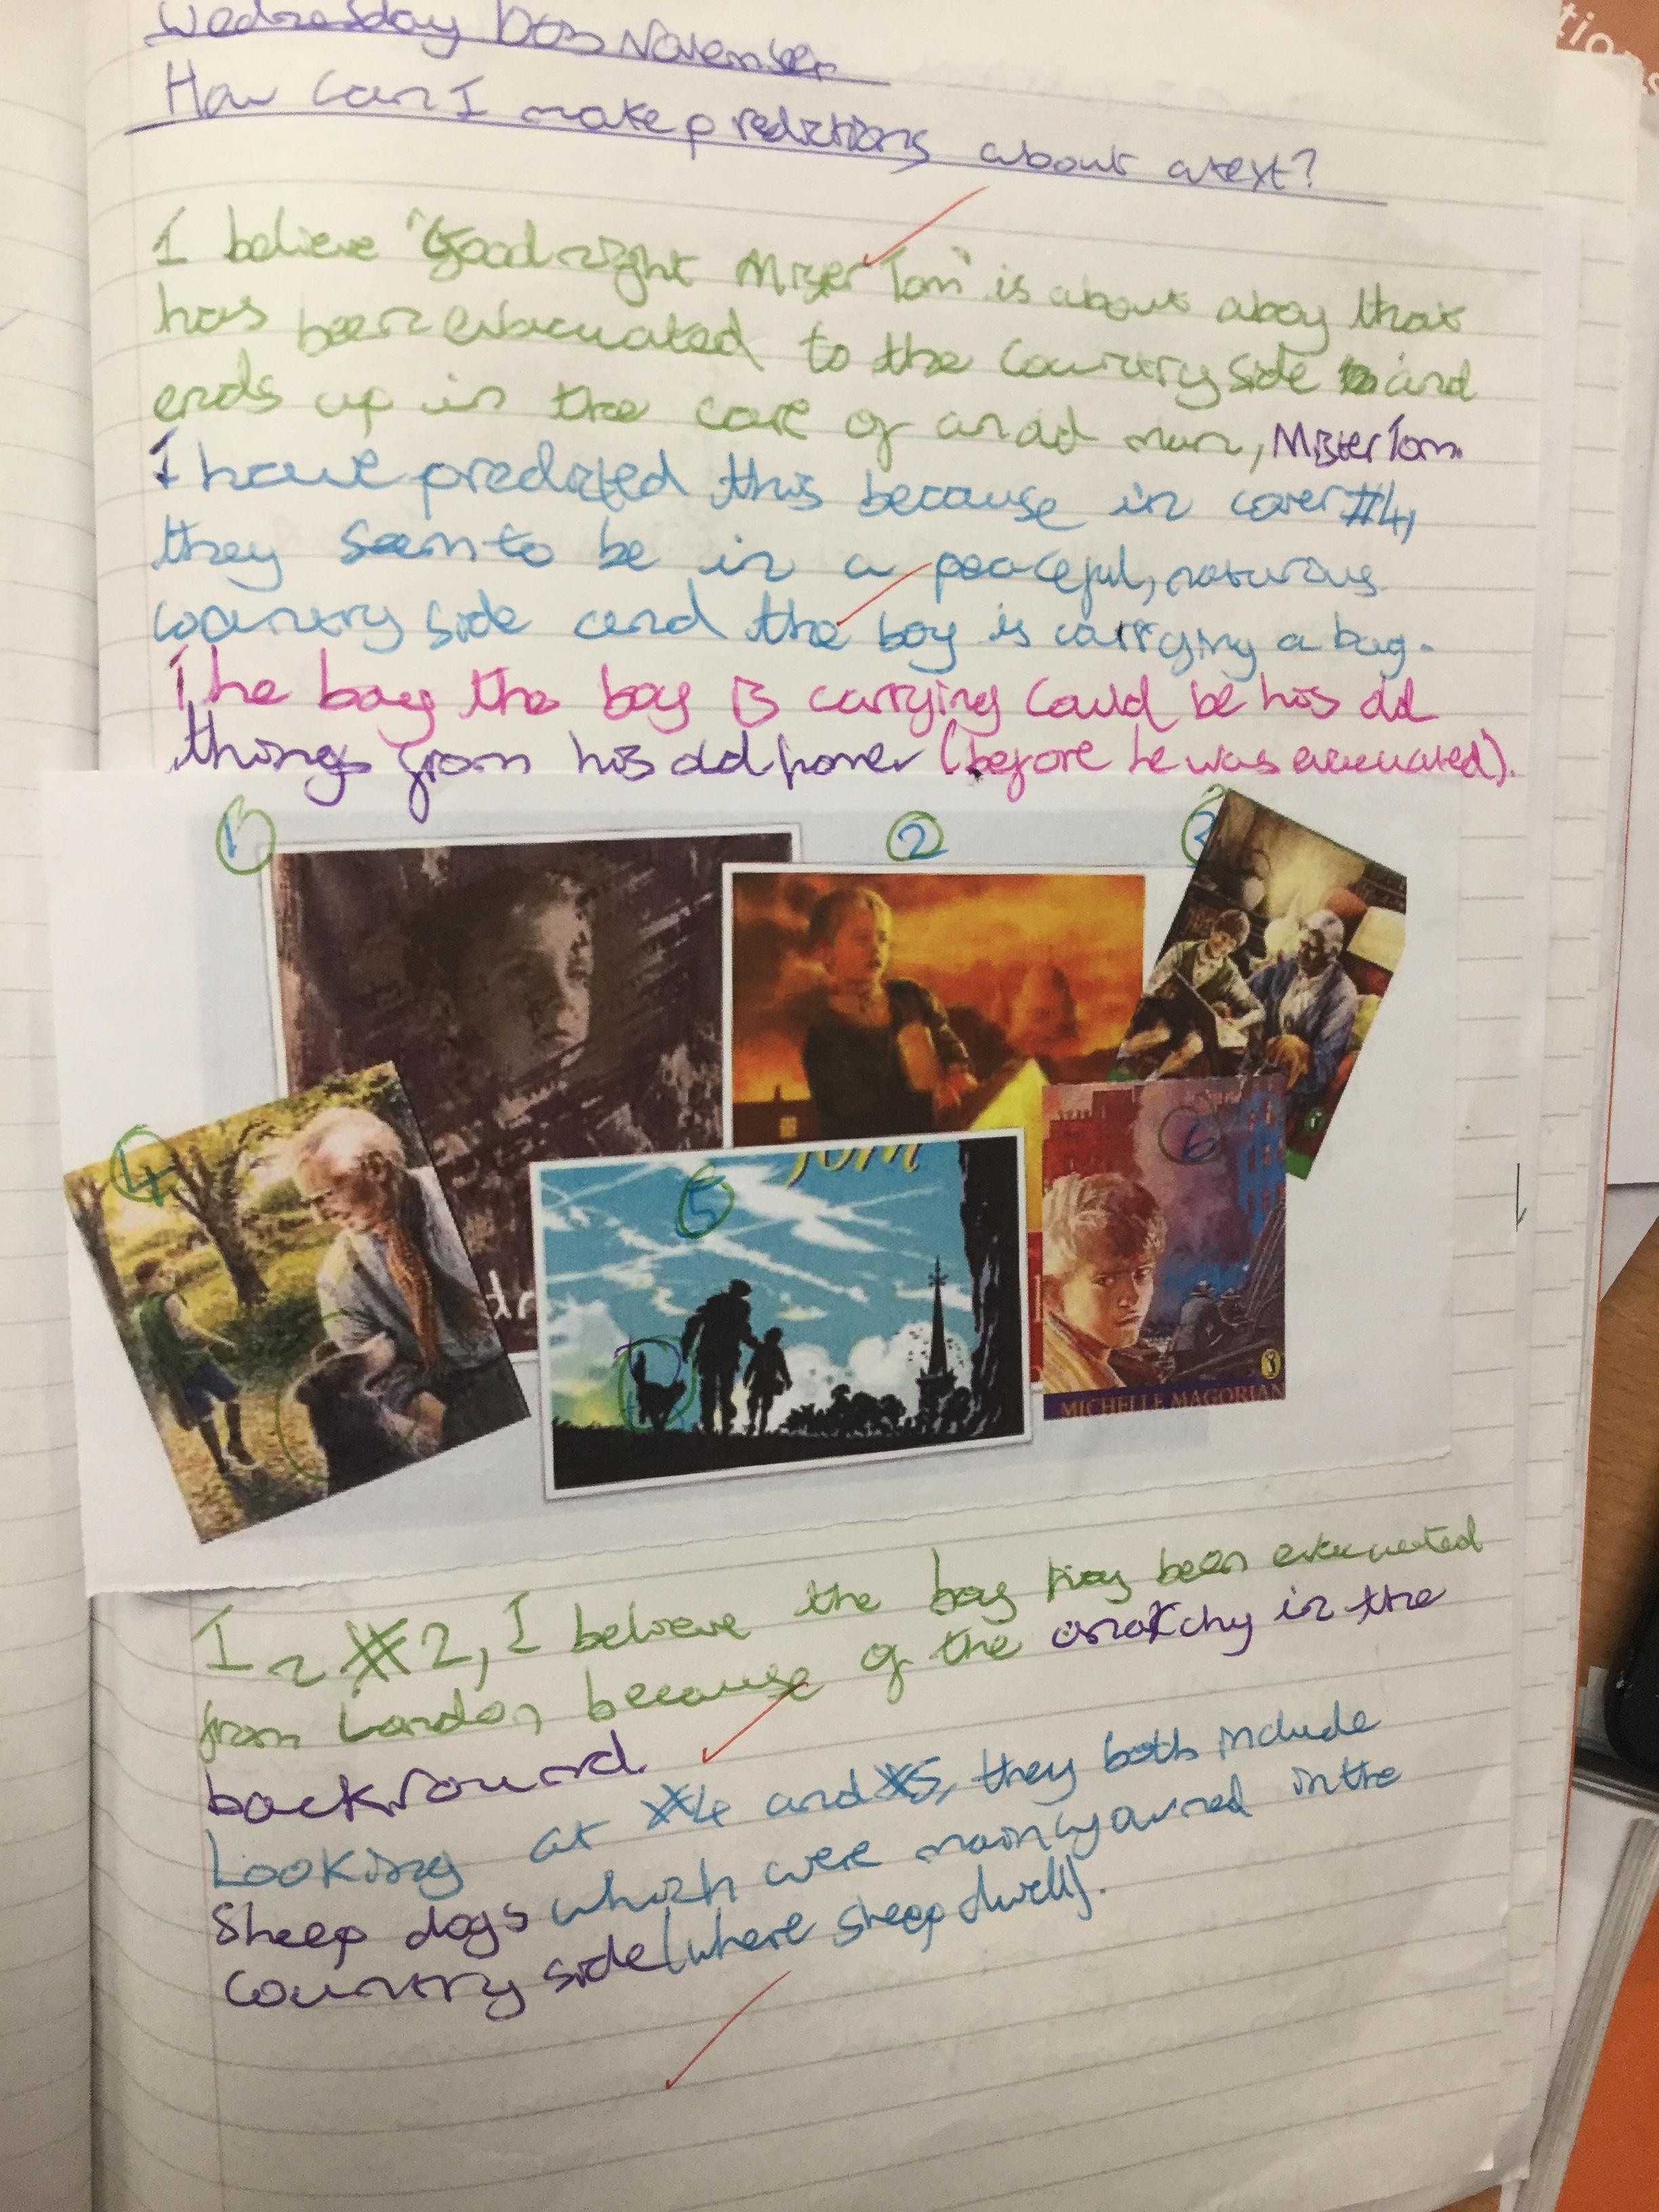 Wednesday November
How Can I make predictions about a text?
I believe "Goodnight Mister Tom" is about a boy that
has been evacuated to the Country side and
ends up in the care of an old man, Mister Tom.
I have predicted this because in cover #4,
they seem to be in a peaceful,
country side and the boy is carrying a bag.
The bag the boy is carrying could be his old
things from his old home (before he was evacuated).
1
2
3
4
5
6
Tom
MICHELLE MAGORIAN
In #2, I believe the boy has been evacuated
from London because of the anarchy in the
backround.
Looking at #4 and #5, they both include
Sheep dogs which were mainly owned in the
Country side (where sheep dwell).